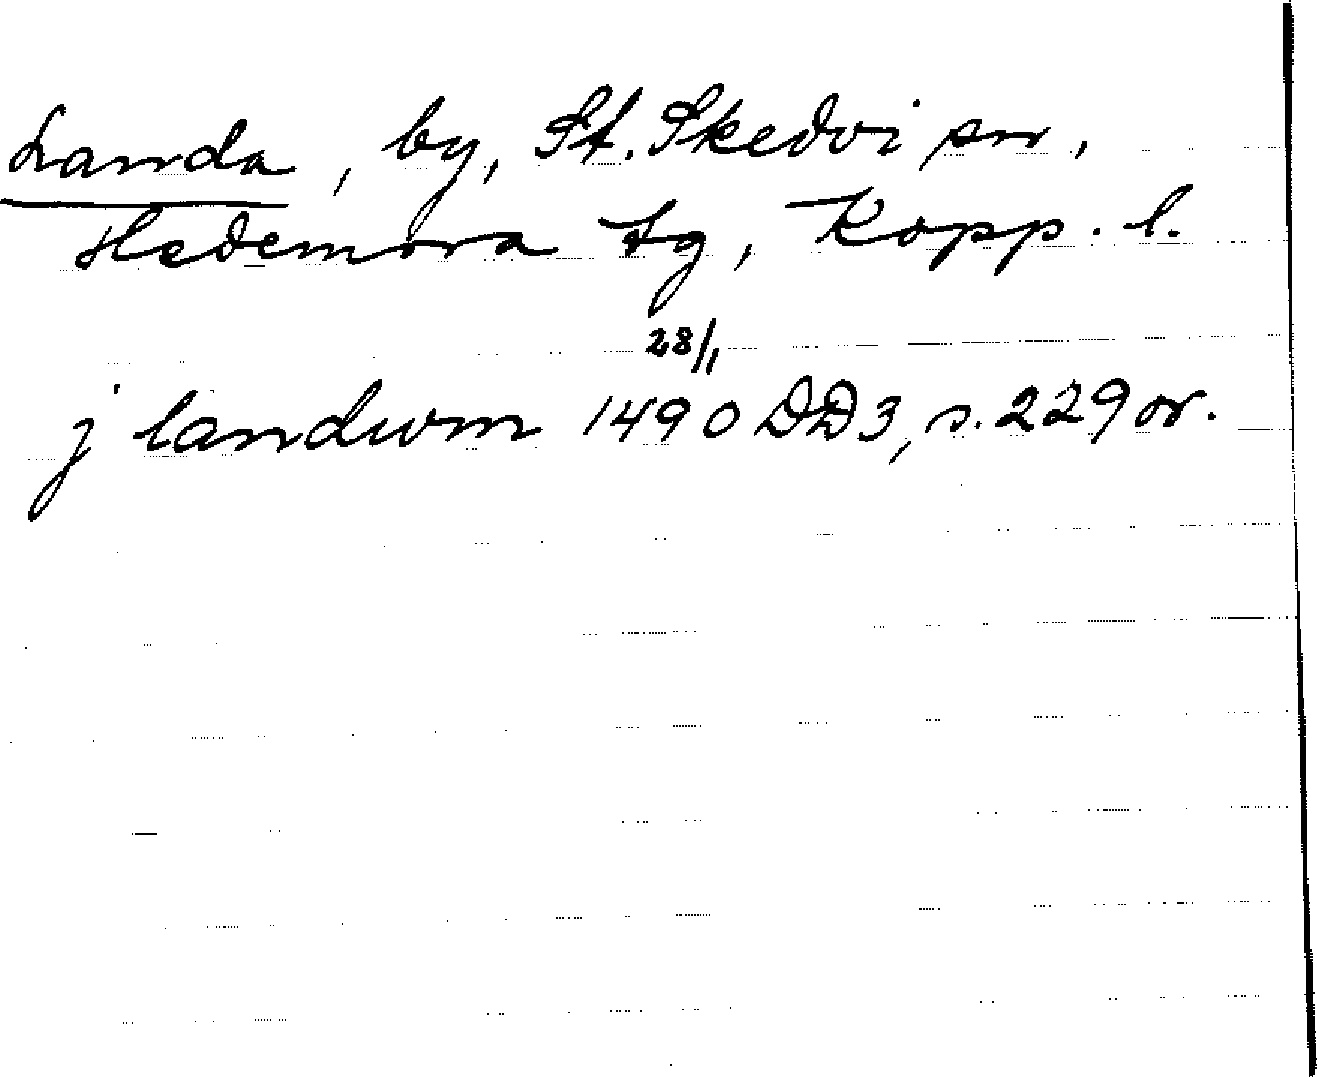 Landa, by, St. Skedvi sn,
Hedemora tg, Kopp. l.
28/1
j landwm 1490 DD3, s. 229 or.